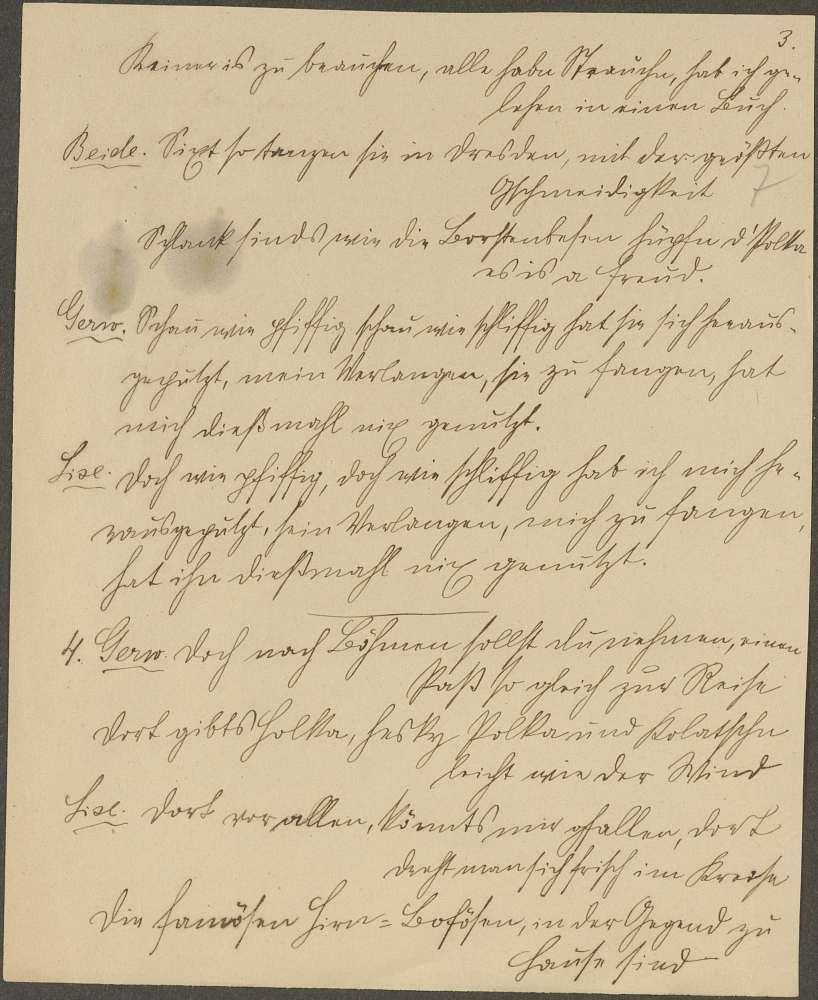 3.
Keiner is zu brauchen, alle habn Strauchn, hab ich ge-
lesen in einen Buch.
Beide. Sixt so tanzen sie in Dresden, mit der größten
7
Gschmeidigkeit
Schlank sinds wie die Borstenbesen hüpfn d'Polka
es is a Freud.
Gerw. Schau wie pfiffig schau wie schliffig hat sie sich heraus-
geputzt, mein Verlangen, sie zu fangen, hat
mich dießmahl nix genutzt.
Lisl. Doch wie pfiffig, doch wie schliffig hab ich mich he-
rausgeputzt, sein Verlangen, mich zu fangen,
hat ihn dießmahl nix genutzt.
4. Gerw. Doch nach Böhmen sollst du nehmen, einen
Paß so gleich zur Reise
Dort gibts Holka, hesky Polka und Kolatschn
leicht wie der Wind
Lisl. Dort vor allen, könnts mir gfallen, dort
dreht man sich frisch im Kreise
Die famösen Hirn-Bofösen, in der Gegend zu
Hause sind